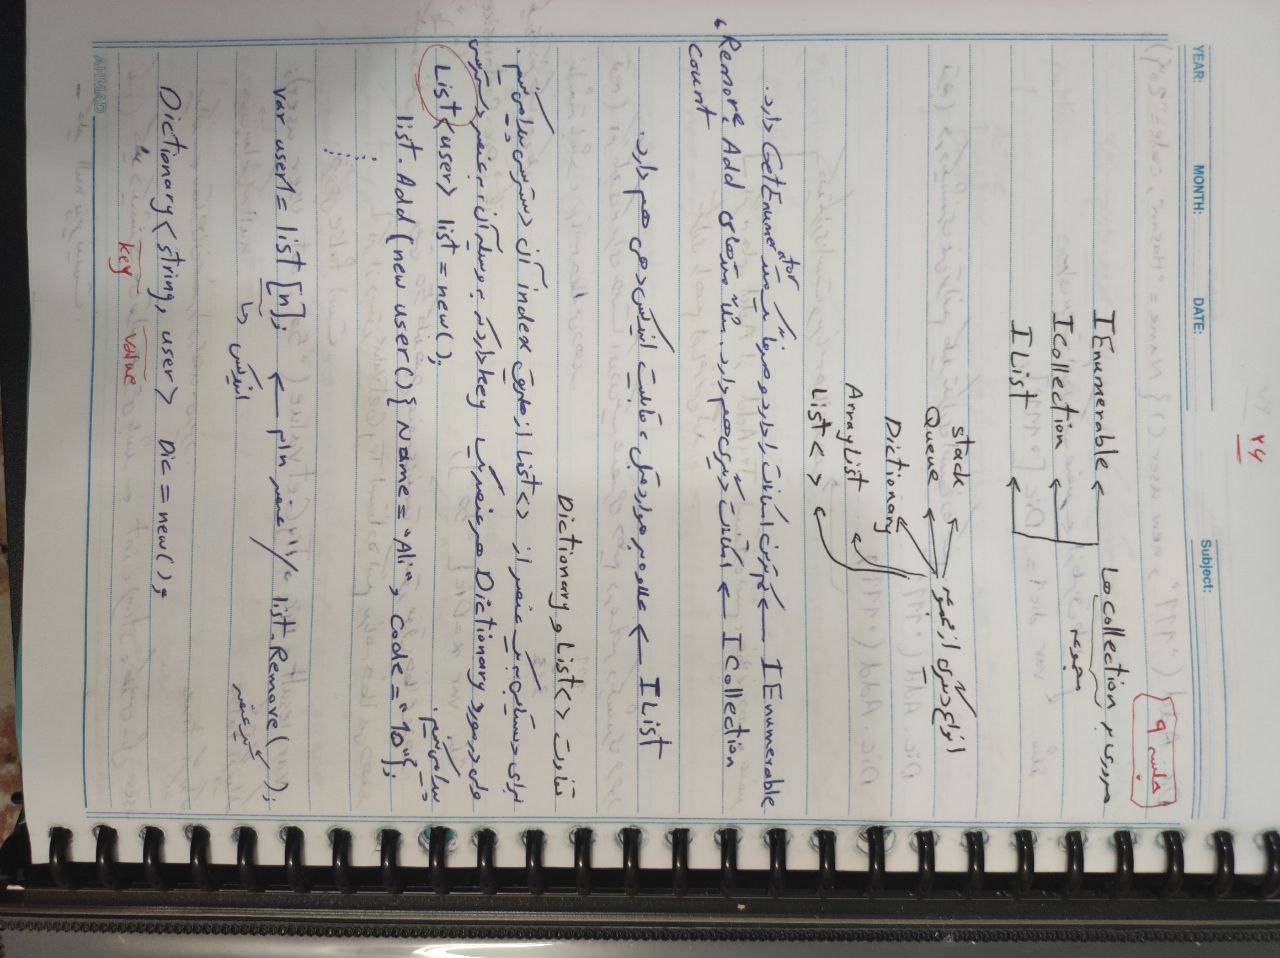 ۲۶
YEAR: MONTH: DATE: Subject:
جلسه ۹
مروری بر collection ها
مجموعه
IEnumerable
ICollection
IList
انواع دیگری از مجموعه
stack
Queue
Dictionary
ArrayList
List< >
IEnumerable ← کم‌ترین امکانات را دارد و صرفاً یک متد GetEnumerator دارد.
ICollection ← امکانات دیگری هم دارد. مثلاً متدهای Add، Remove،
count
IList ← علاوه بر موارد قبل، قابلیت اندیکس دهی هم دارد.
تفاوت List<> و Dictionary
برای دستیابی به یک عنصر از List<> از طریق index آن دسترسی پیدا می‌کنیم.
ولی در مورد Dictionary هر عنصر یک key دارد که به وسیله آن، به عنصر دسترسی
پیدا می‌کنیم.
List<user> list = new();
list.Add(new user(){ Name = "Ali", Code = "10"};
var user1 = list [n]; ← عنصر n ام / list.Remove( );
اندیکس ها
عنصر
Dictionary<string, user> Dic = new();
key value
AHMAD